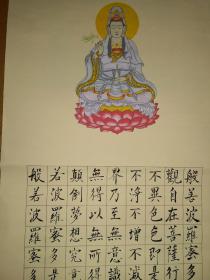 般若波羅蜜多
觀自在菩薩行
不異色色即是
不淨不增不減
界乃至無意識
無得以無所得
顛倒夢想究竟
若波羅蜜多是
般若波羅蜜多